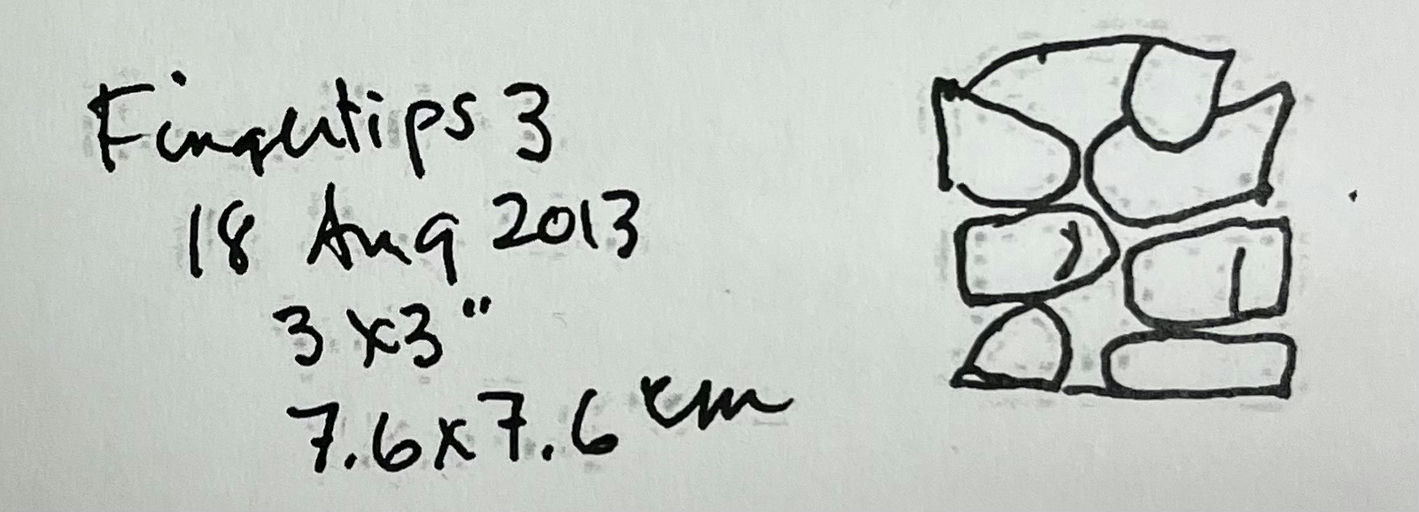 Fingertips 3
18 Aug 2013
3x3"
7.6x7.6 cm